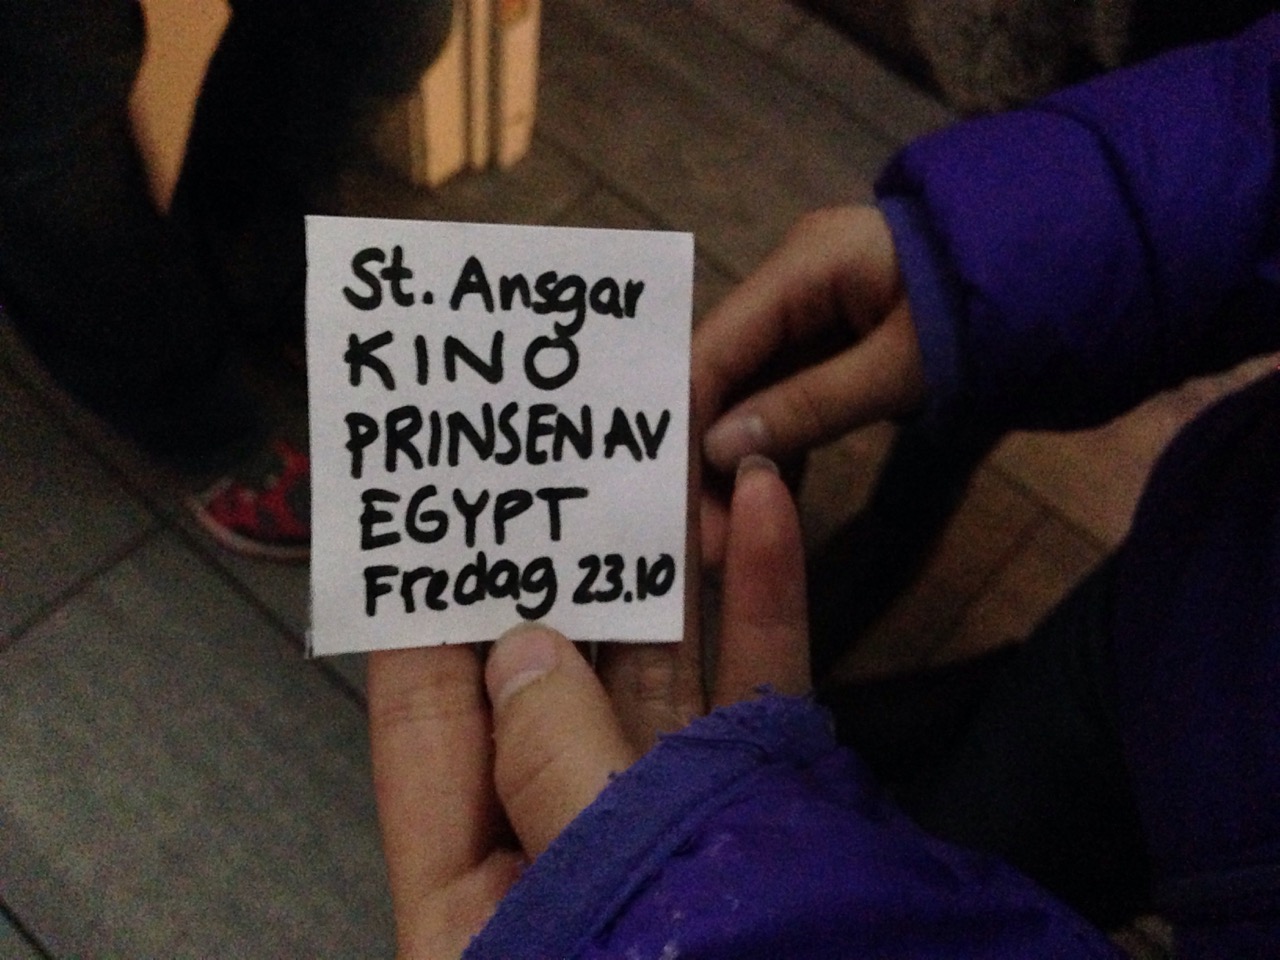 St. Ansgar
KINO
PRINSEN AV
EGYPT
Fredag 23.10